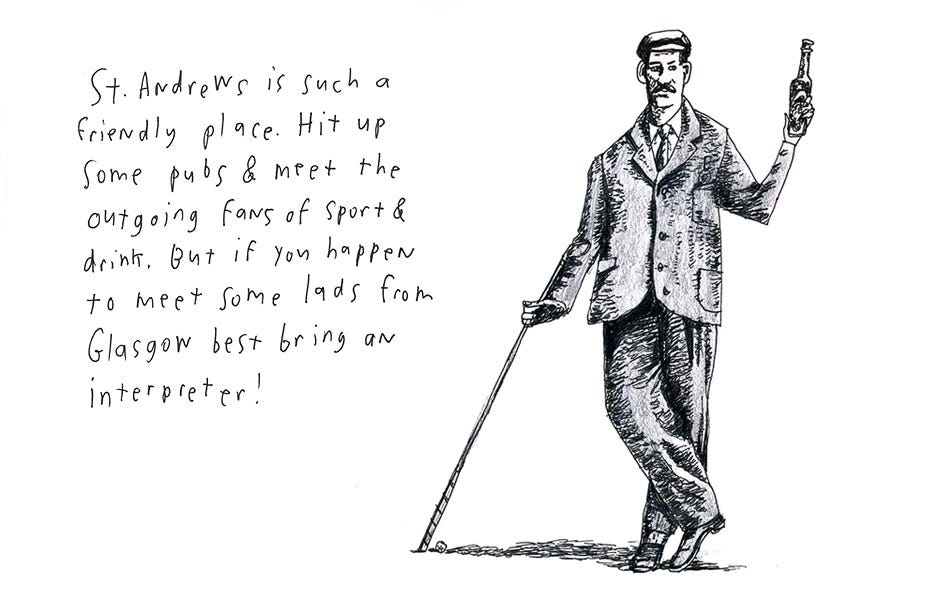 St. Andrews is such a
friendly place. Hit up
some pubs & meet the
outgoing fans of sport &
drink. But if you happen
to meet some lads from
Glasgow best bring an
interpreter!